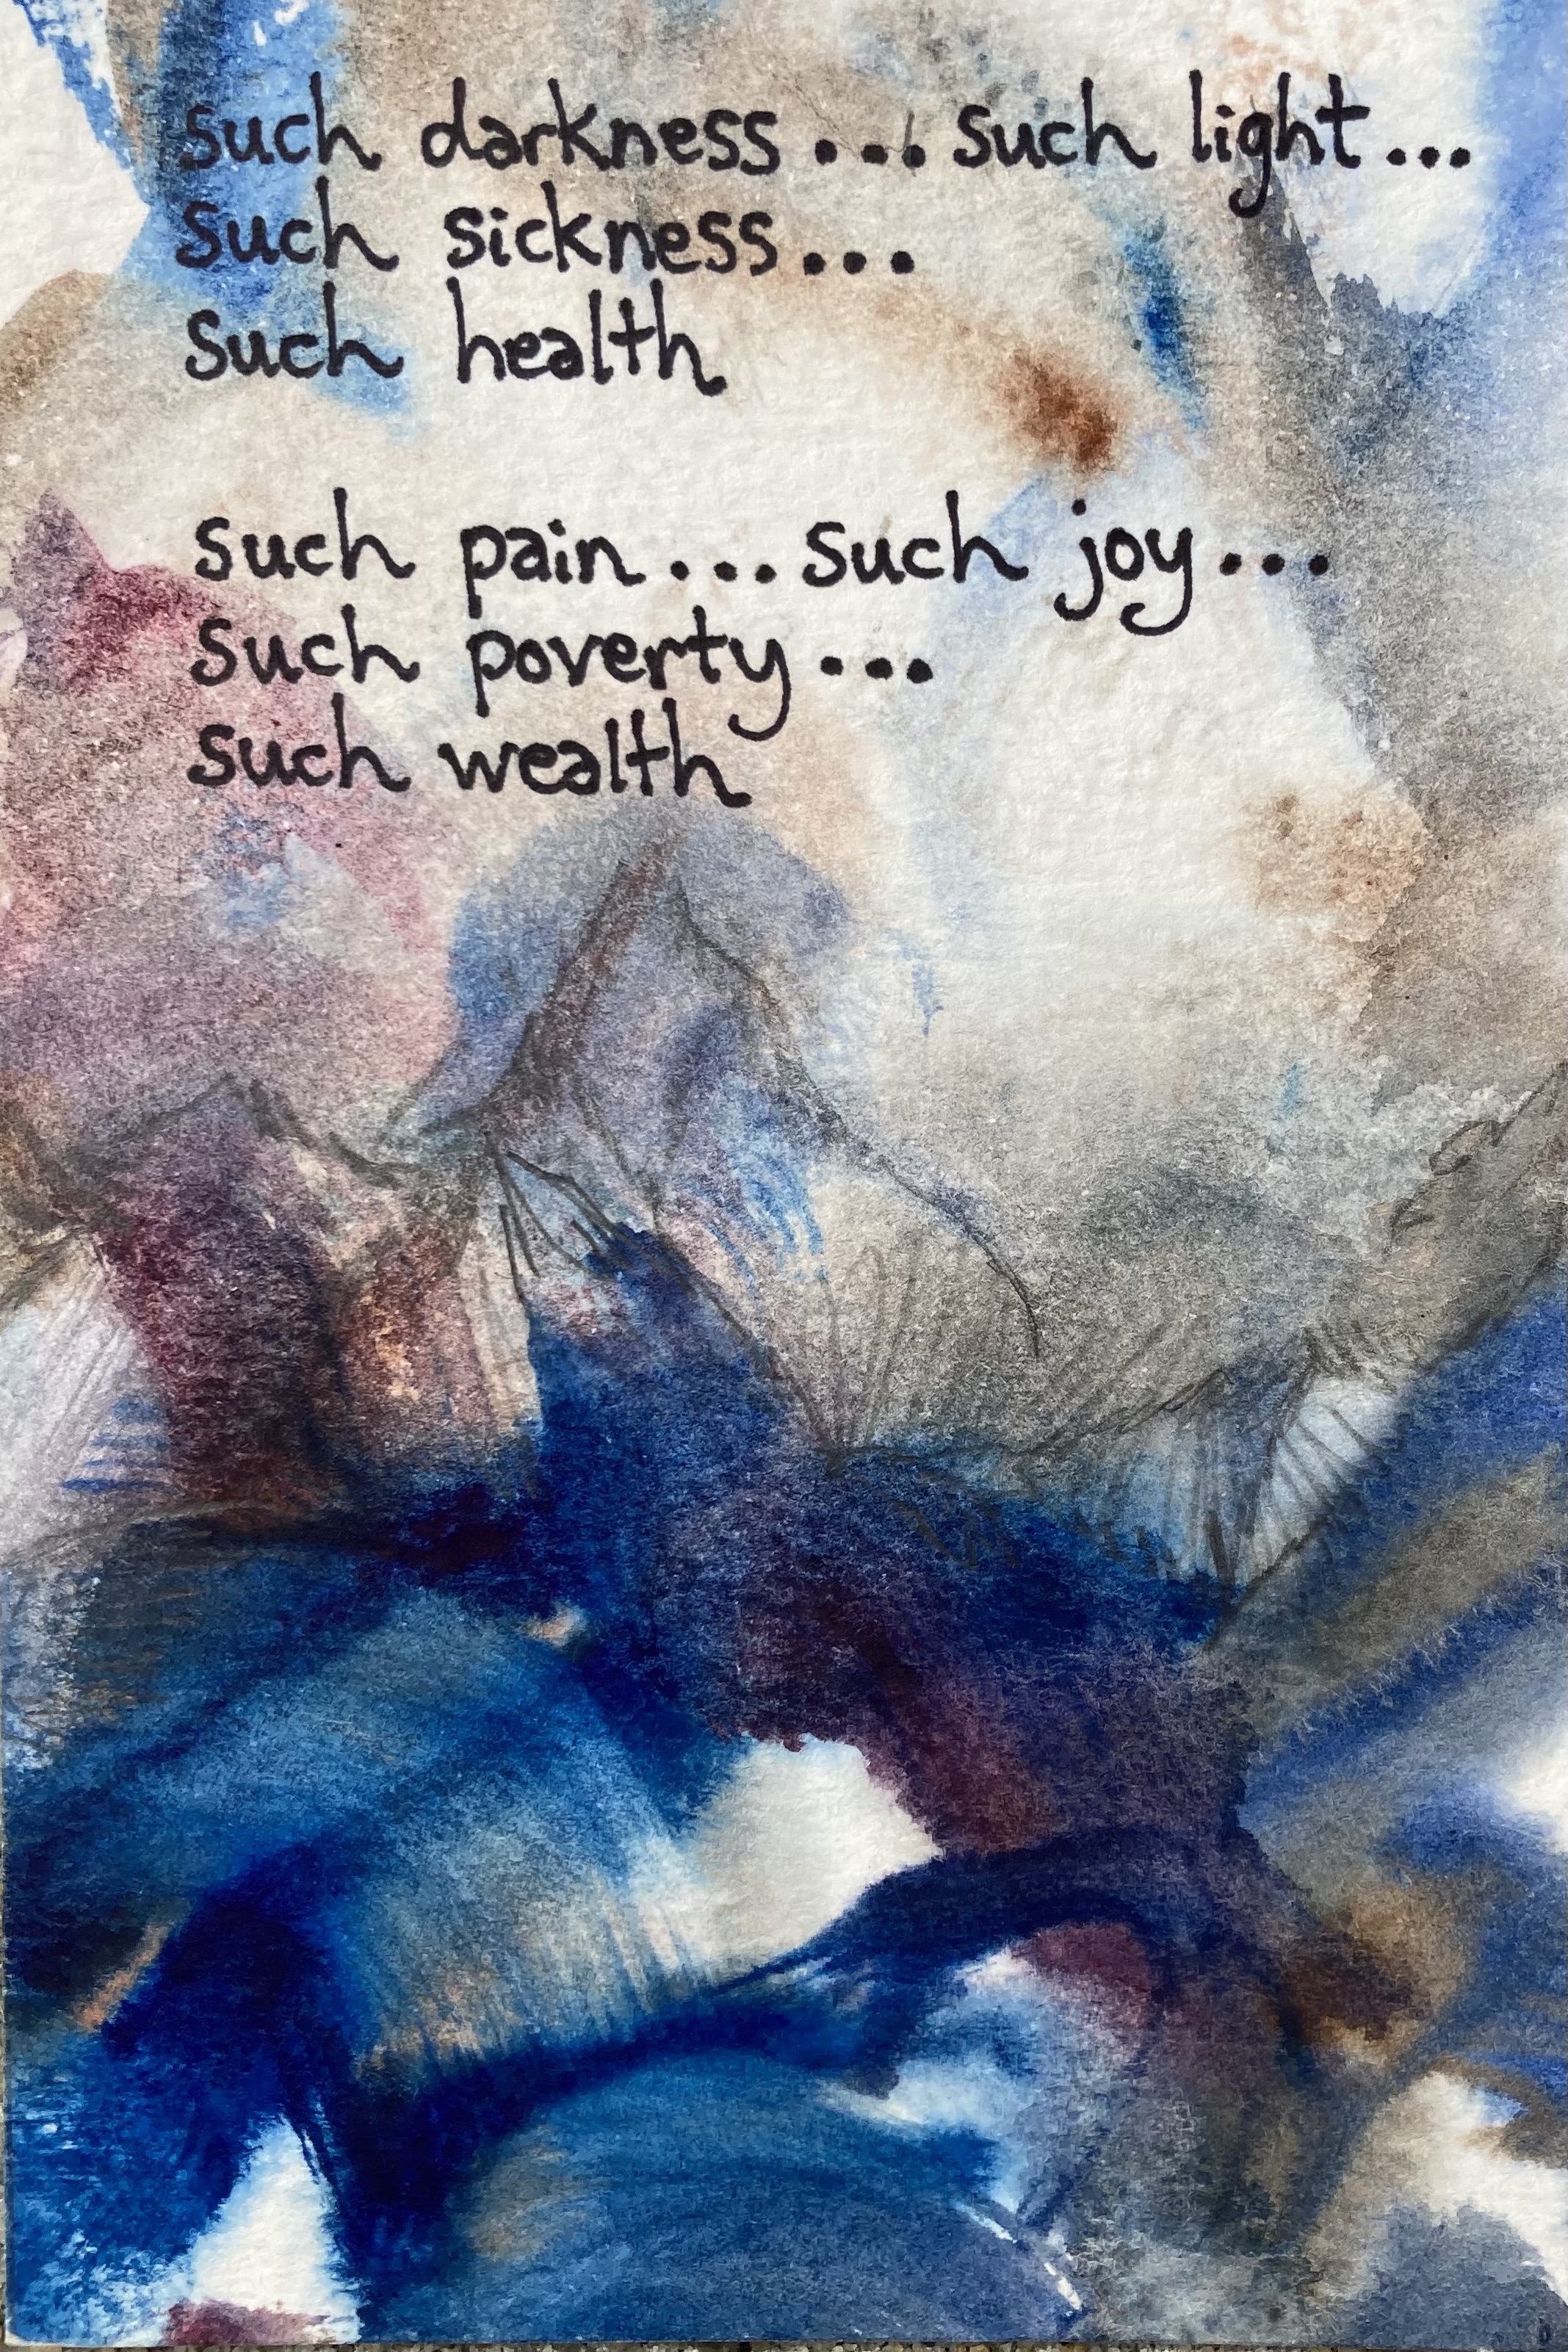 such darkness... such light...
such sickness...
such health
such pain... such joy...
such poverty...
such wealth